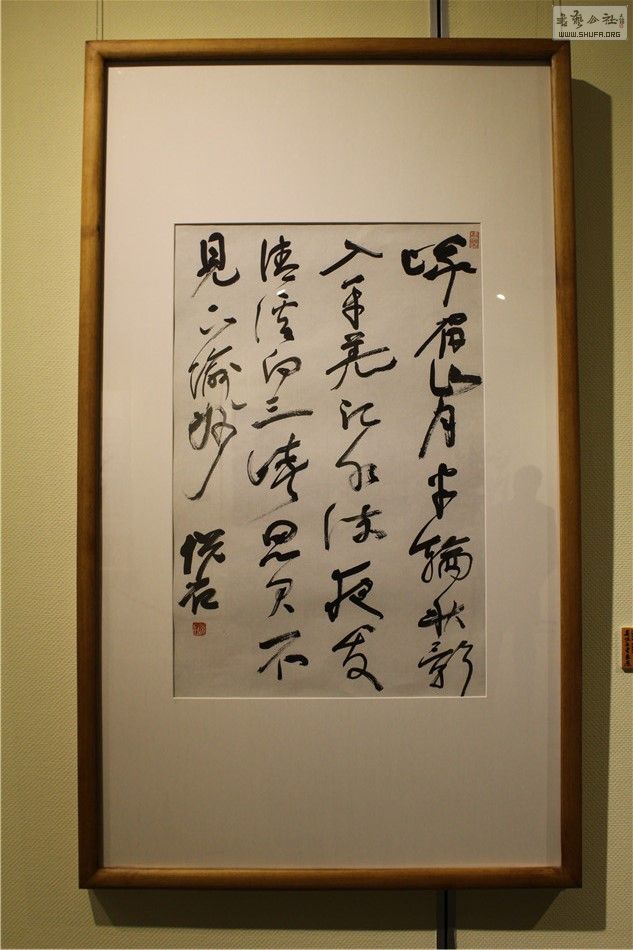 書藝公社
WWW.SHUFA.ORG
峨眉山月半輪秋影
入平羌江水流夜发
清溪向三峡思君不
見下渝州